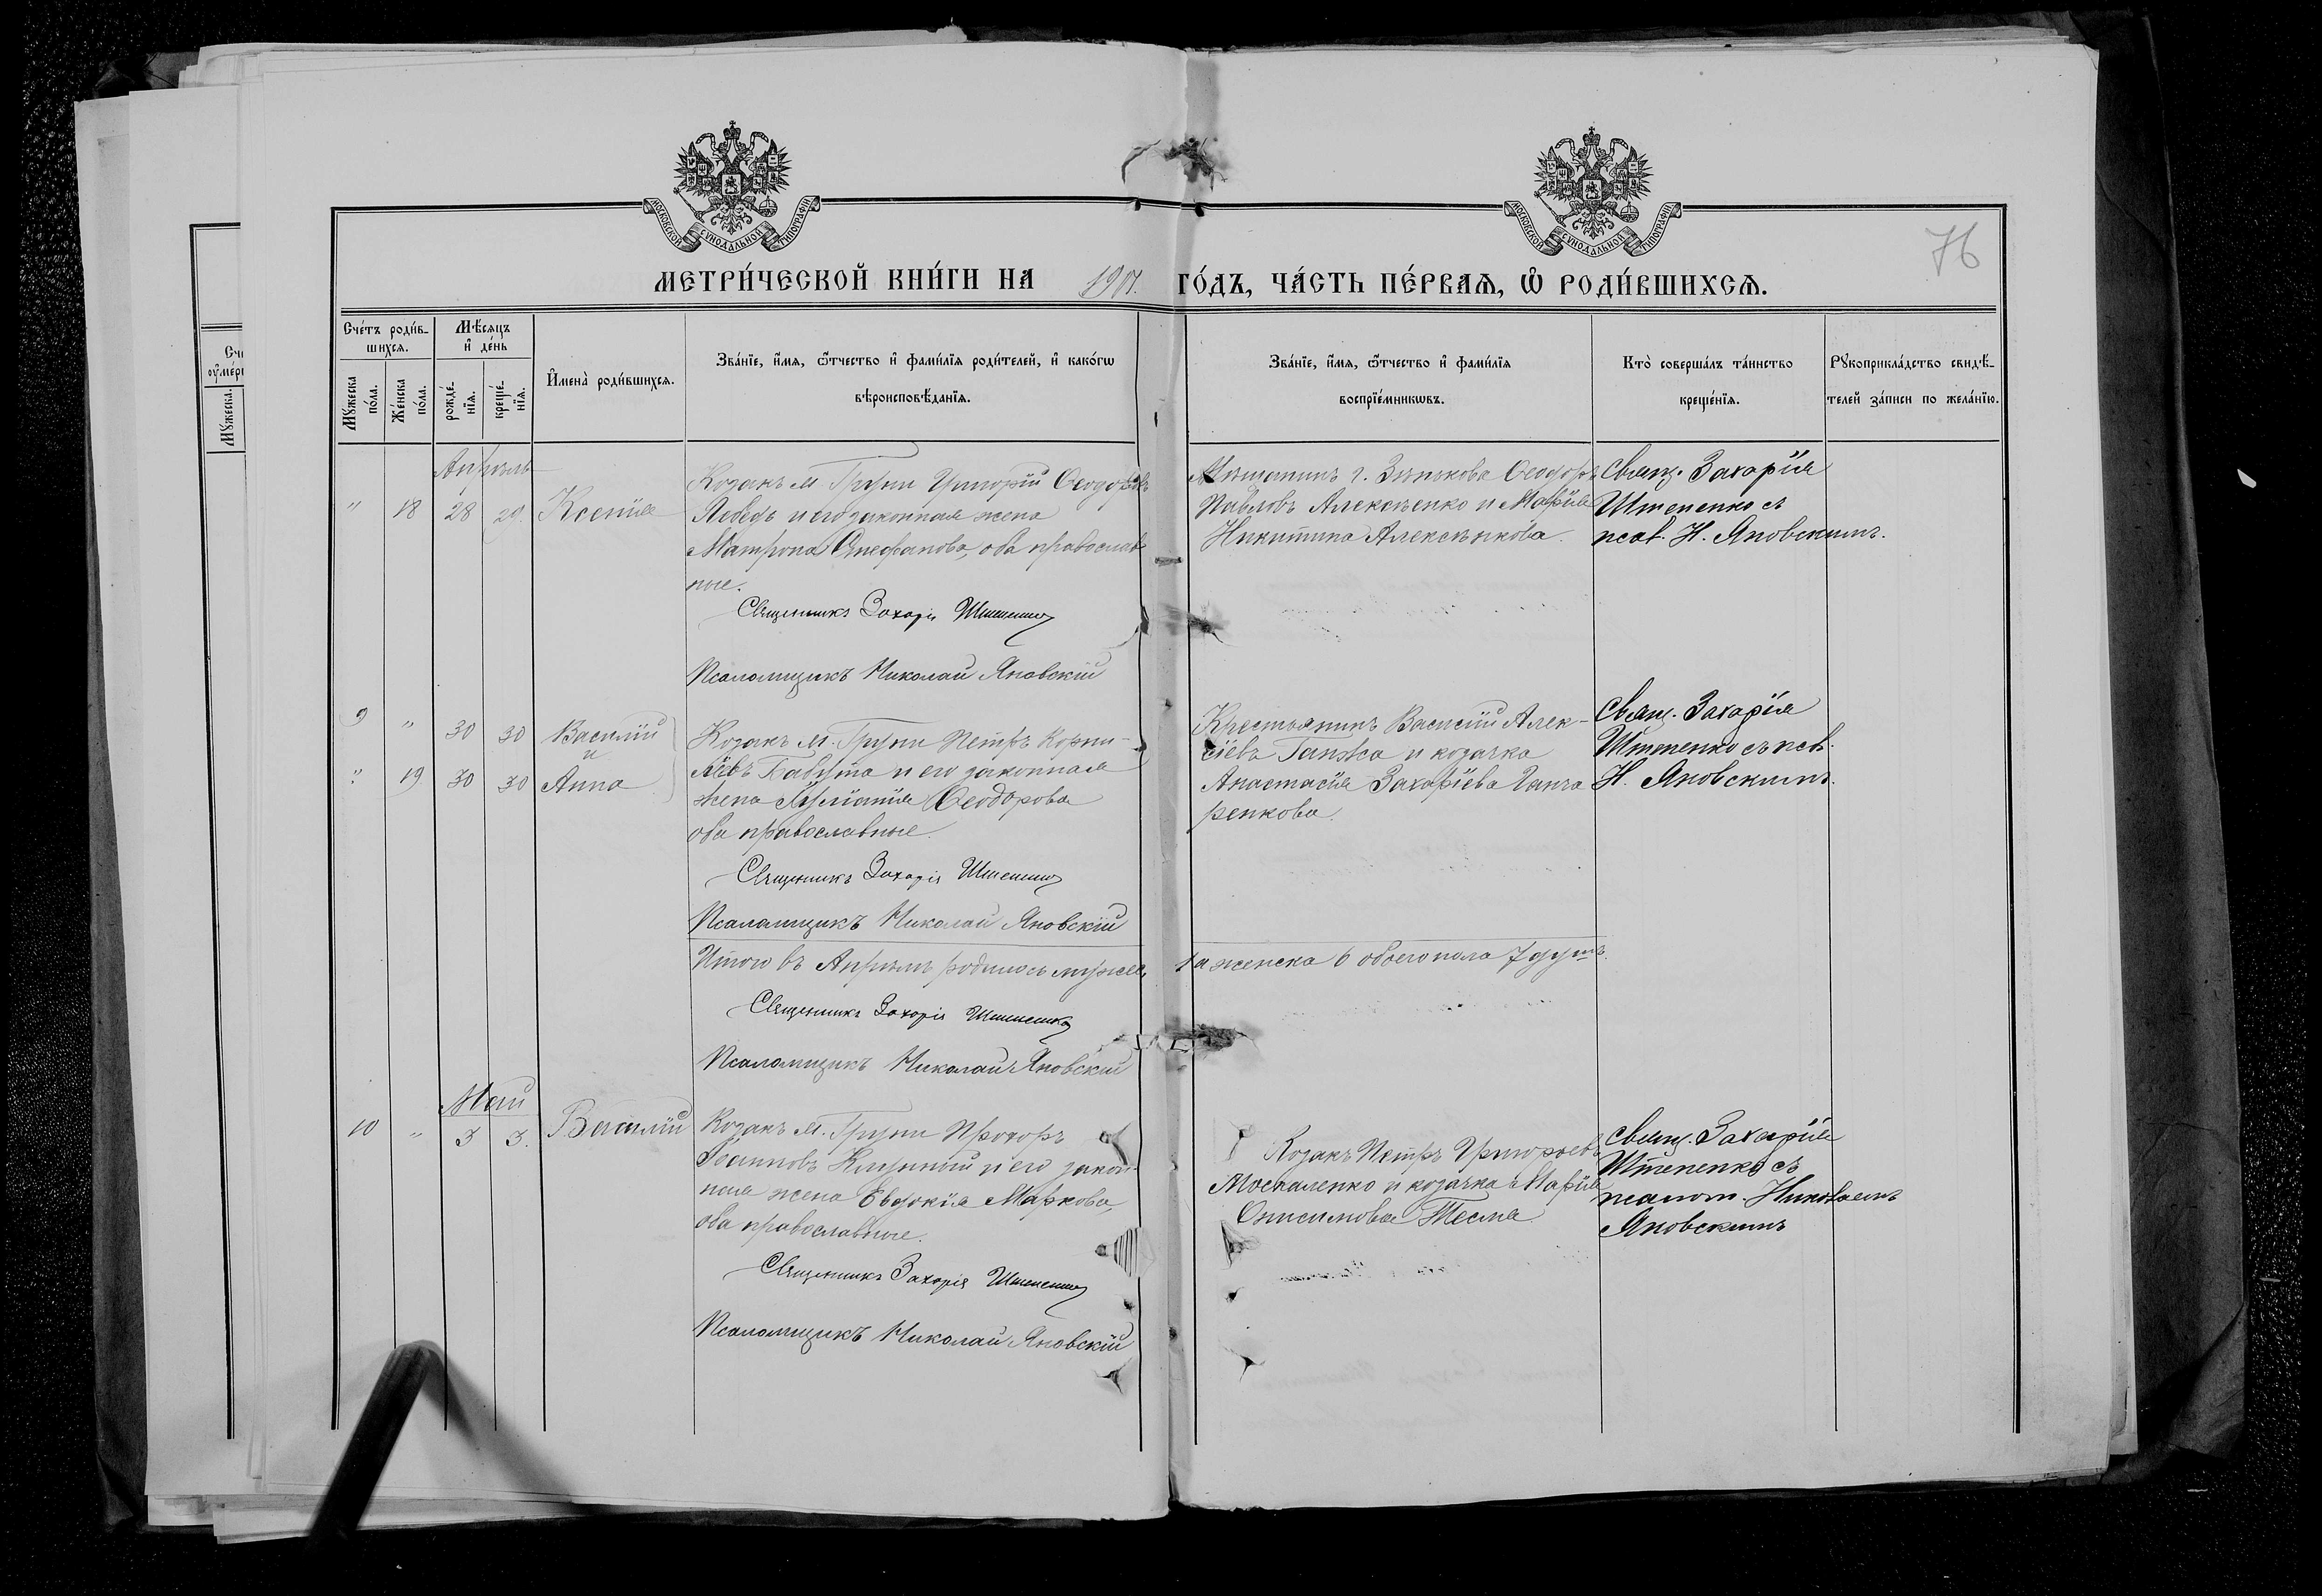 МОСКОВСКОЙ СѴНОДАЛЬНОЙ ТИПОГРАФІИ
МОСКОВСКОЙ СѴНОДАЛЬНОЙ ТИПОГРАФІИ
76
МЕТРИ́ЧЕСКОЙ КНИ́ГИ НА 1901. ГО́ДЪ, ЧА́СТЬ ПЕ́РВАѦ, Ѡ҆ РОДИ́ВШИХСѦ.
Сче́тъ роди́в-
шихсѧ.
Мꙋ́жеска по́ла.
Же́нска по́ла.
Мѣ́сѧцъ
и҆ де́нь
рожде́-
нїѧ.
креще́-
нїѧ.
И҆мена̀ роди́вшихсѧ.
Зва́нїе, и҆́мѧ, ѻ҆́тчество и҆ фами́лїѧ роди́телей, и҆ како́гѡ
вѣроисповѣ́данїѧ.
Зва́нїе, и҆́мѧ, ѻ҆́тчество и҆ фами́лїѧ
воспрїе́мникѡвъ.
Кто̀ соверша́лъ та́инство
креще́нїѧ.
Рꙋкоприкла́дство свидѣ́-
телей за́писи по жела́нїю.
Апрѣль
" 18 28 29. Ксенія
Козакъ м. Груни Григорій Ѳеодоровъ
Лебедь и его законная жена
Матрона Стефанова, оба православ
ные.
Священникъ Захарія
Псаломщикъ Николай Яновскій
Мѣщанинъ г. Зѣнькова Ѳеодоръ
Павловъ Алексѣенко и Марія
Никитина Алексѣнкова
Свящ. Захарія
Штепенко съ
псал. Н. Яновскимъ.
9 " 30 30 Василій
и
" 19 30 30 Анна
Козакъ м. Груни Петръ Корни-
ліевъ Бабута и его законная
жена Іуліанія Ѳеодорова
оба православные.
Священникъ Захарія
Псаломщикъ Николай Яновскій
Крестьянинъ Василій Алек-
сіевъ Ганжа и козачка
Анастасія Захаріева Ганча
ренкова.
Свящ. Захарія
Штепенко съ псл.
Н. Яновскимъ.
Итого въ Апрѣлѣ родилось мужеск. 1 а женска 6 обоего пола 7 душъ.
Священникъ Захарія
Псаломщикъ Николай Яновскій
Май
10 " 3 3. Василій
Козакъ м. Груни Прохоръ
Іоанновъ и его закон-
ная жена Евдокія Маркова,
оба православные.
Священникъ Захарія
Псаломщикъ Николай Яновскій
Козакъ Петръ Григорьевъ
Москаленко и козачка Марія
Онисимова Тесля
Свящ. Захарія
Штепенко съ
псалом. Николаемъ
Яновскимъ